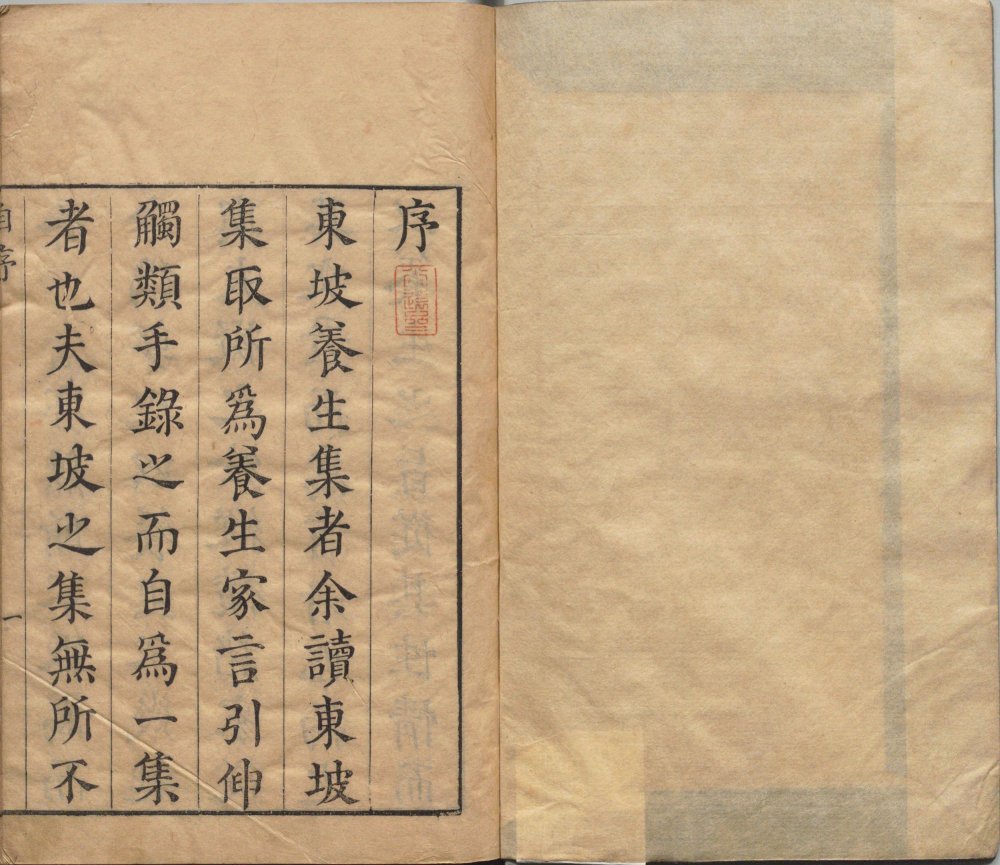 序
東坡養生集者余讀東坡
集取所爲養生家言引伸
觸類手錄之而自爲一集
者也夫東坡之集無所不
自序
一